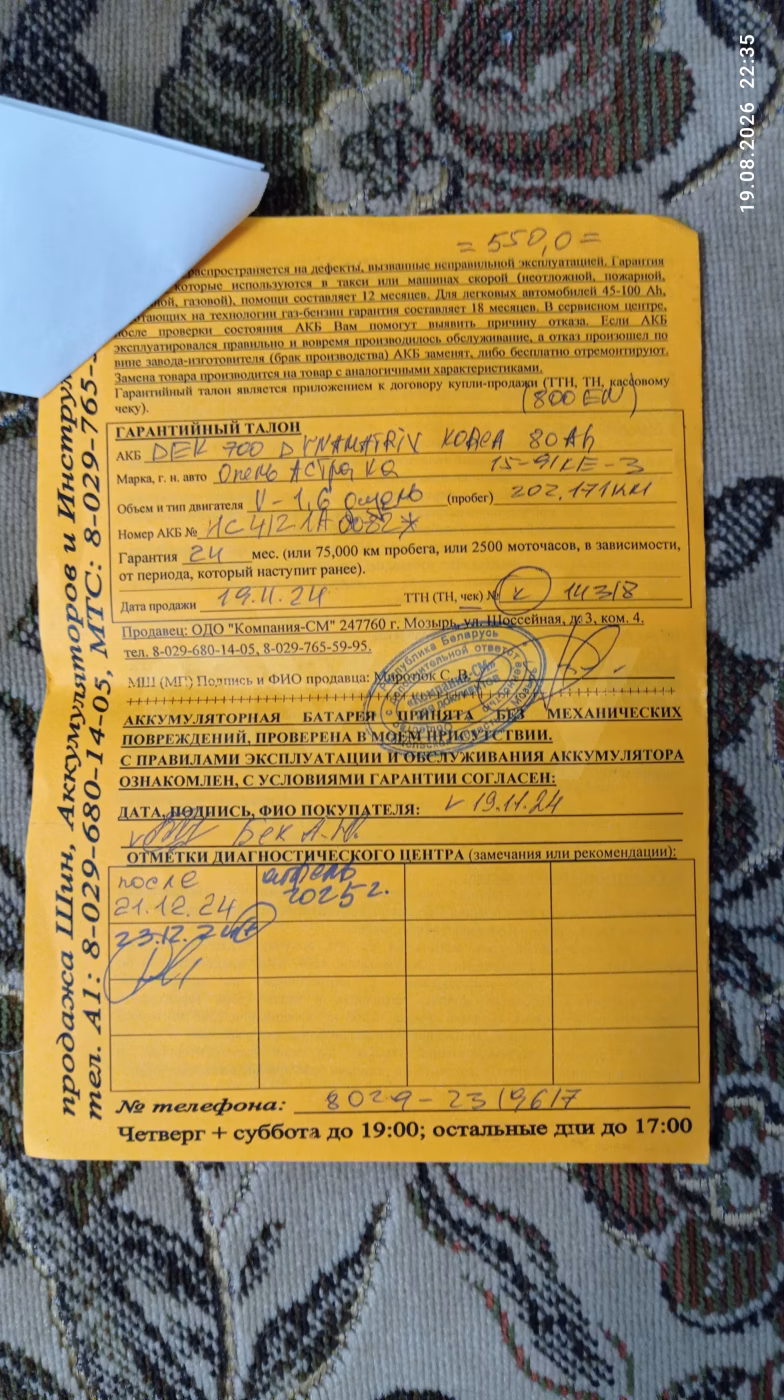 19.08.2026 22:35
= 550,0 =
распространяется на дефекты, вызванные неправильной эксплуатацией. Гарантия
которые используются в такси или машинах скорой (неотложной, пожарной,
газовой), помощи составляет 12 месяцев. Для легковых автомобилей 45-100 Ah,
на технологии газ-бензин гарантия составляет 18 месяцев. В сервисном центре,
после проверки состояния АКБ Вам помогут выявить причину отказа. Если АКБ
эксплуатировался правильно и вовремя производилось обслуживание, а отказ произошел по
вине завода-изготовителя (брак производства) АКБ заменят, либо бесплатно отремонтируют.
Замена товара производится на товар с аналогичными характеристиками.
Гарантийный талон является приложением к договору купли-продажи (ТТН, ТН, кассовому
чеку).
(800 EN)
ГАРАНТИЙНЫЙ ТАЛОН
АКБ DEK 700 Корея 80 Ah
Марка, г. н. авто Опель Астра 15-91 KE-3
Объем и тип двигателя V-1,6 (пробег) 202.171 км
Номер АКБ №
Гарантия 24 мес. (или 75,000 км пробега, или 2500 моточасов, в зависимости,
от периода, который наступит ранее).
Дата продажи 19.11.24 ТТН (ТН, чек) № к 14318
Продавец: ОДО "Компания-СМ" 247760 г. Мозырь, ул. Шоссейная, д. 3, ком. 4,
тел. 8-029-680-14-05, 8-029-765-59-95.
МШ (МП) Подпись и ФИО продавца: Миротюк С. В.
Республика Беларусь
«Компания-СМ»
АККУМУЛЯТОРНАЯ БАТАРЕЯ ПРИНЯТА БЕЗ МЕХАНИЧЕСКИХ
ПОВРЕЖДЕНИЙ, ПРОВЕРЕНА В МОЕМ ПРИСУТСТВИИ.
С ПРАВИЛАМИ ЭКСПЛУАТАЦИИ И ОБСЛУЖИВАНИЯ АККУМУЛЯТОРА
ОЗНАКОМЛЕН, С УСЛОВИЯМИ ГАРАНТИИ СОГЛАСЕН:
ДАТА, ПОДПИСЬ, ФИО ПОКУПАТЕЛЯ: v 19.11.24
v Бек
ОТМЕТКИ ДИАГНОСТИЧЕСКОГО ЦЕНТРА (замечания или рекомендации):
после
21.12.24
апрель
2025 г.
23.12.24
№ телефона: 8029-2319617
Четверг + суббота до 19:00; остальные дни до 17:00
продажа Шин, Аккумуляторов и
тел. А1: 8-029-680-14-05, МТС: 8-029-765-